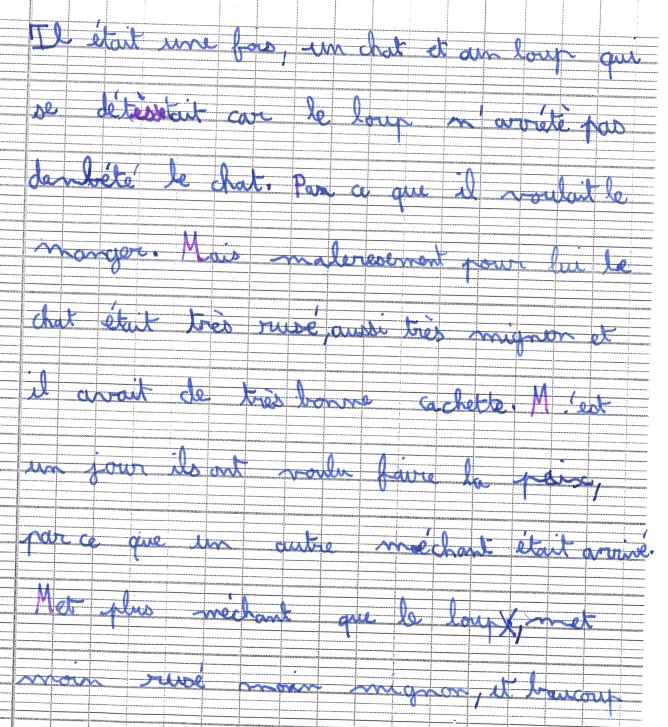 Il était une fois, un chat et un loup qui
se détèsetait car le loup n'arrétè pas
dembété le chat. Par ca que il voulait le
manger. Mais maleresement pour lui le
chat était très rusé, aussi très mignon et
il avait de très bonne cachette. M'est
un jour ils ont voulu faire la paix,
par ce que un autre méchant était arrivé.
Met plus méchant que le loup, met
moin rusé moin mignon, et baucoup